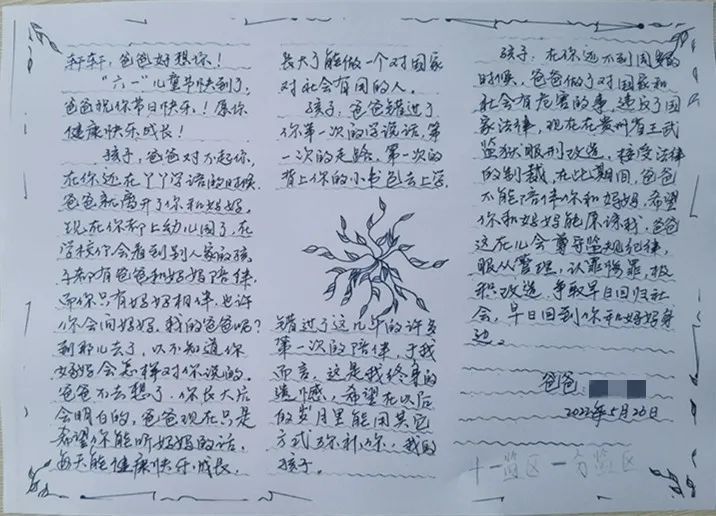 轩轩，爸爸好想你！
"六一"儿童节快到了，
爸爸祝你节日快乐！愿你
健康快乐成长！
孩子，爸爸对不起你，
在你还在丫丫学语的时候，
爸爸就离开了你和妈妈，
现在你都上幼儿园了，在
学校你会看到别人家的孩
子都有爸爸和妈妈陪伴，
而你只有妈妈相伴，也许
你会问妈妈，我的爸爸呢？
到那儿去了，以不知道你
妈妈会怎样对你说的。
爸爸不去想了，你长大后
会明白的，爸爸现在只是
希望你能听妈妈的话，
每天能健康快乐成长，
长大了能做一个对国家
对社会有用的人。
孩子，爸爸错过了
你第一次的学说话，第
一次的走路，第一次的
背上你的小书包去上学，
错过了这几年的许多
第一次的陪伴，于我
而言，这是我终身的
遗憾，希望在以后
的岁月里能用其它
方式弥补你，我的
孩子。
孩子，在你还不到周岁的
时候，爸爸做了对国家和
社会有危害的事，违反了国
家法律，现在在贵州省王武
监狱服刑改造，接受法律
的制裁，在此期间，爸爸
不能陪伴你和妈妈，希望
你和妈妈能原谅我，爸爸
这在儿会尊守监规纪律，
服从管理，认罪悔罪，积
积改造，争取早日回归社
会，早日回到你和妈妈身
边。
爸爸：
2022年5月26日
十一监区一分监区